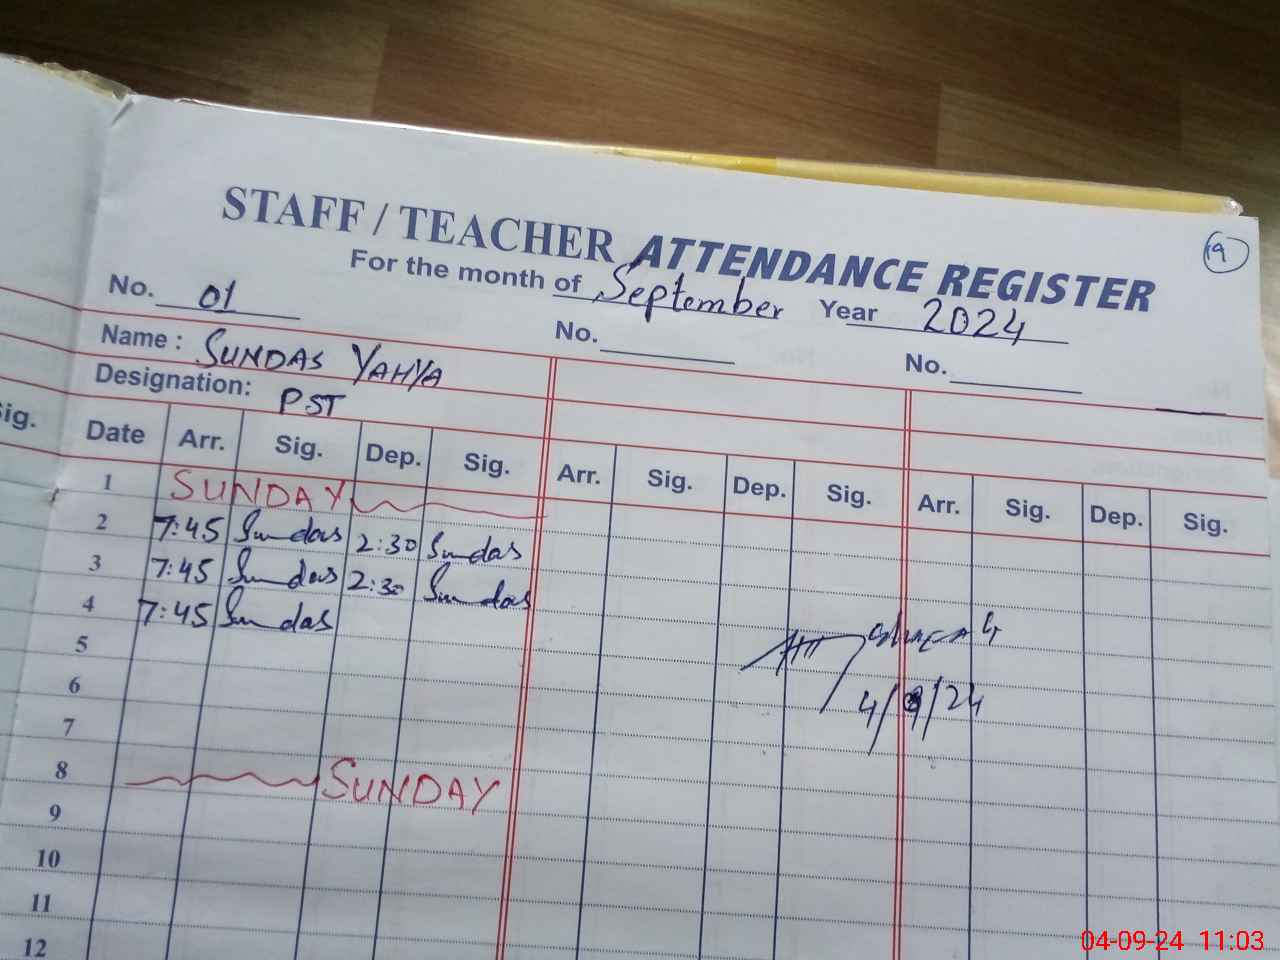 19
STAFF / TEACHER ATTENDANCE REGISTER
For the month of September Year 2024
No. 01 No. No.
Name : SUNDAS YAHYA
Designation: PST
Sig. Date Arr. Sig. Dep. Sig. Arr. Sig. Dep. Sig. Arr. Sig. Dep. Sig.
1 SUNDAY
2 7:45 Sundas 2:30 Sundas
3 7:45 Sundas 2:30 Sundas
4 7:45 Sundas
5
6
4/9/24
7
8 SUNDAY
9
10
11
12
04-09-24 11:03